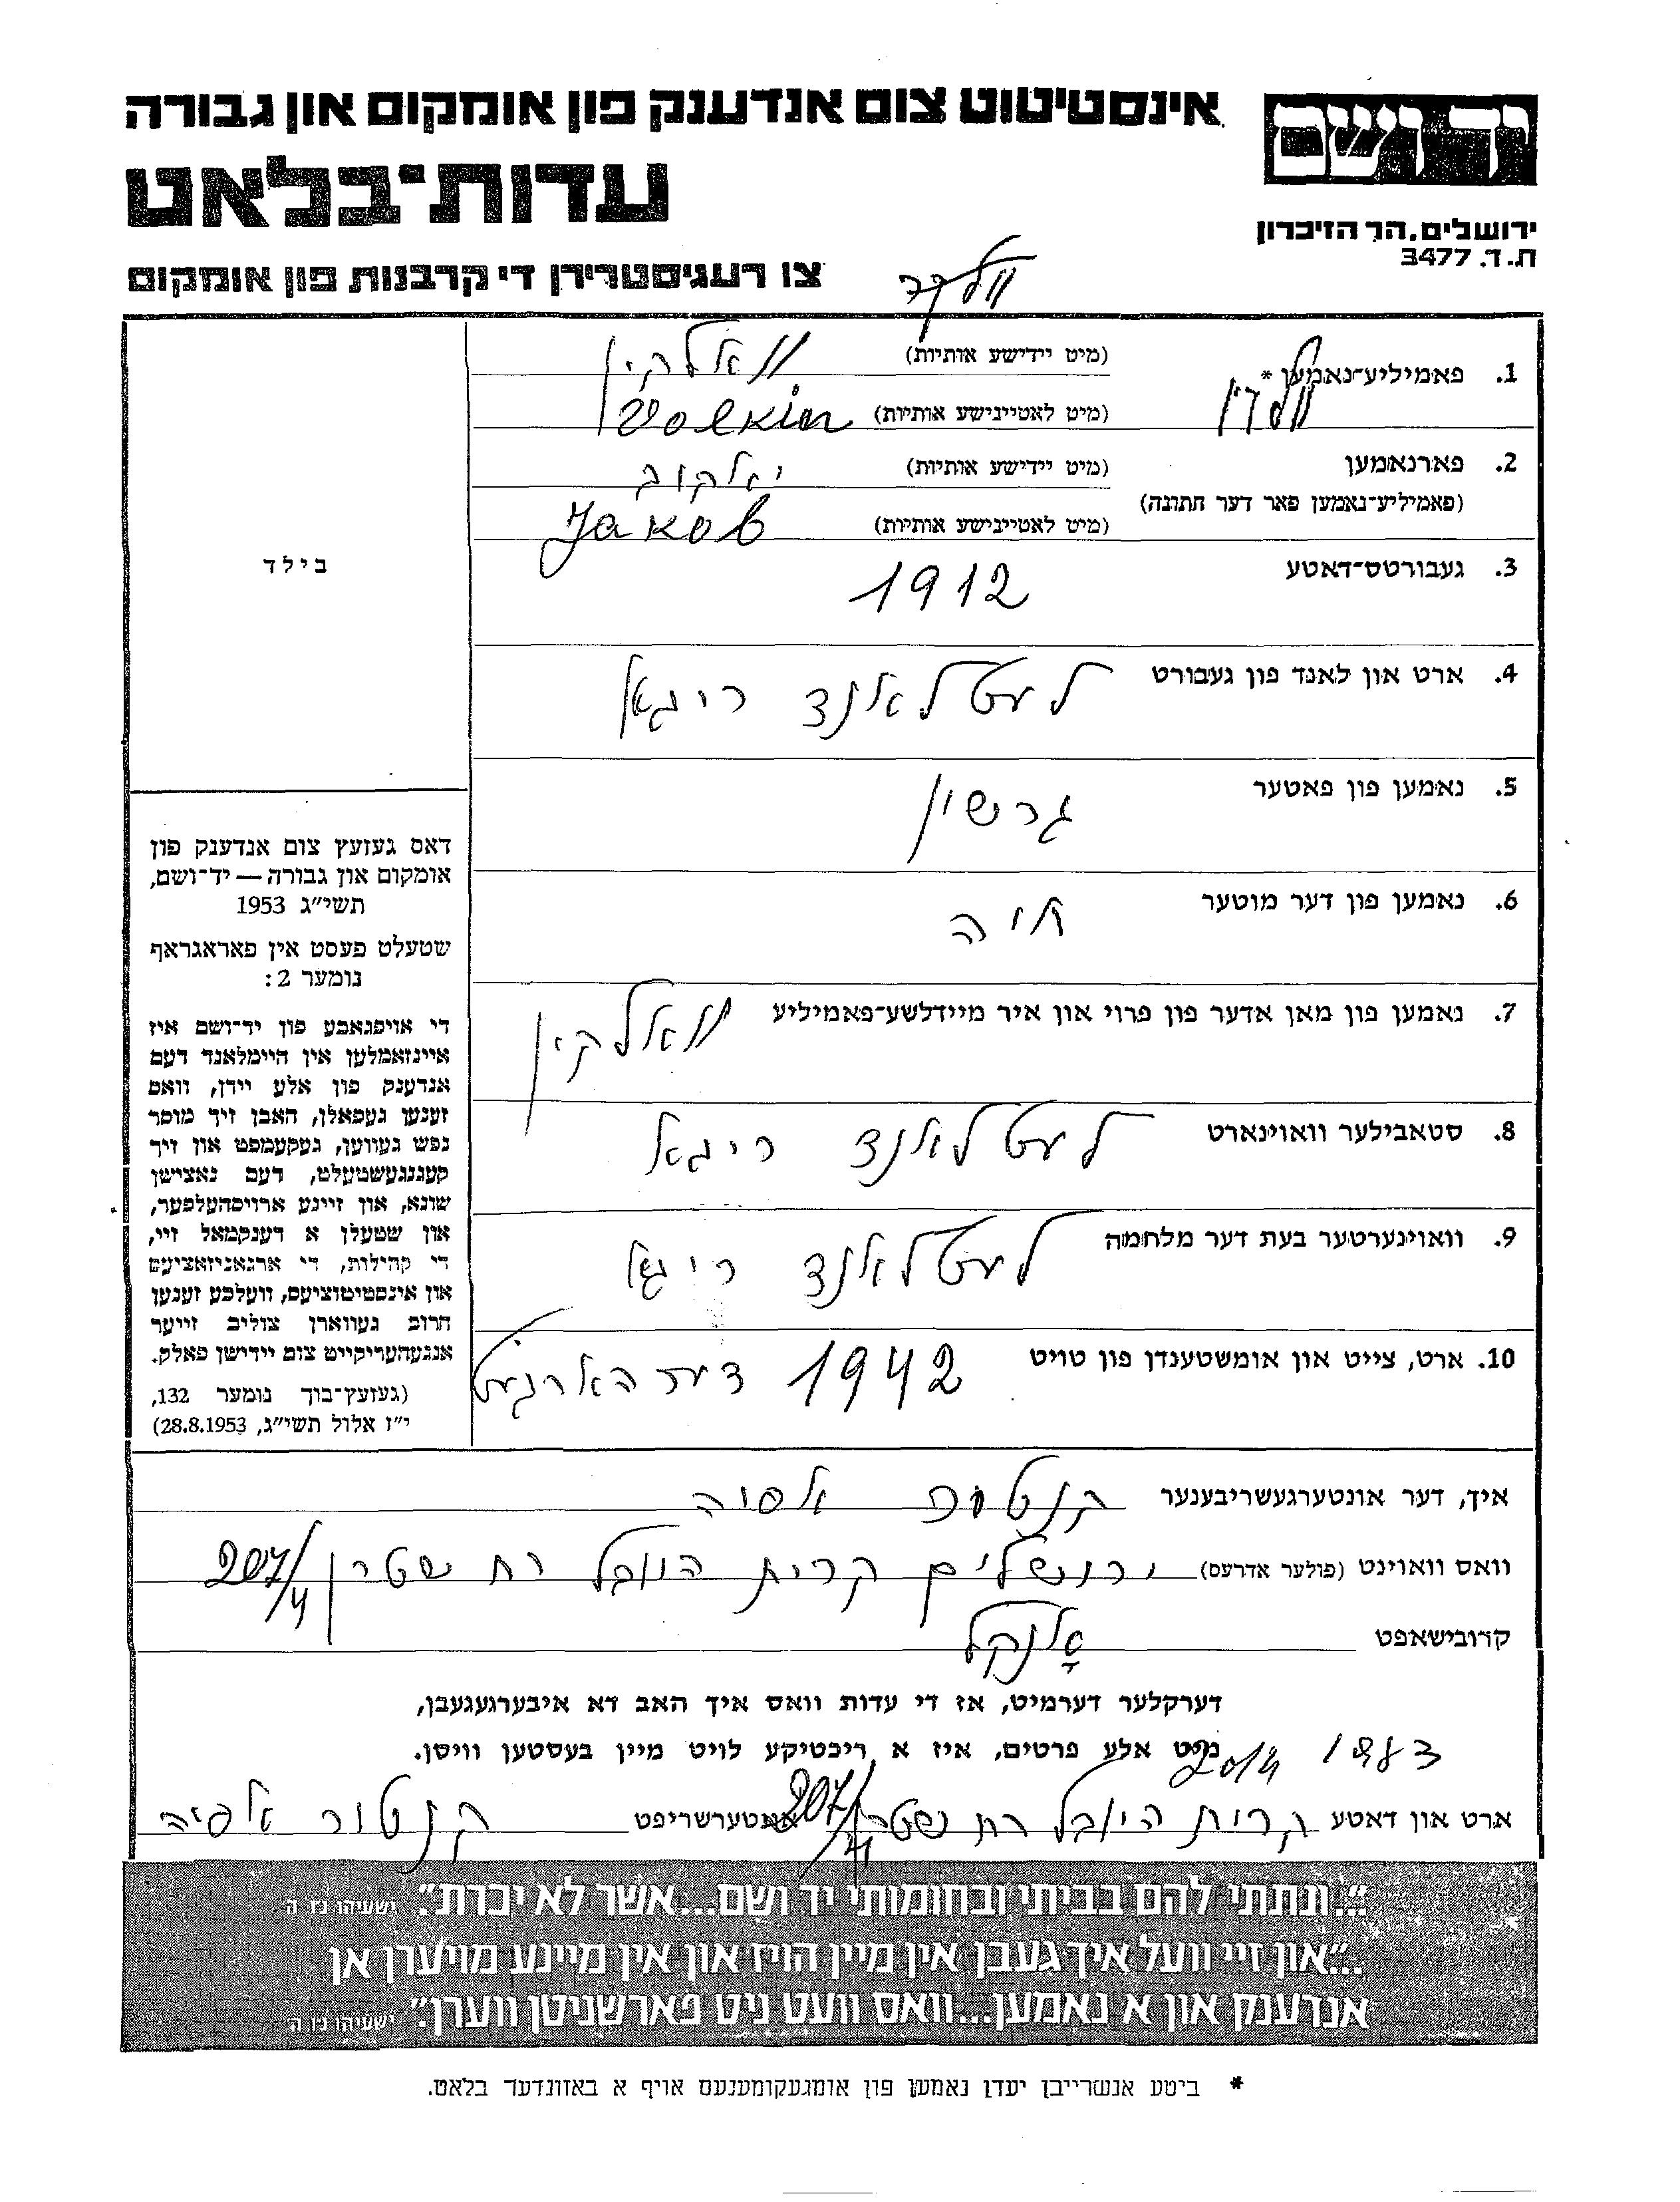 אינסטיטוט צום אנדענק פון אומקום און גבורה
יד ושם
עדות־בלאט
ירושלים, הר הזיכרון
ת.ד. 3477
צו רעגיסטרירן די קרבנות פון אומקום
1. פאמיליע־נאמען *
(מיט יידישע אותיות) וואלקין
(מיט לאטייניشע אותיות) Volkin
2. פארנאמען
(פאמיליע־נאמען פאר דער חתונה)
(מיט יידישע אותיות) יאקוב
(מיט לאטיינישע אותיות) Jakob
בילד
3. געבורטס־דאטע 1912
4. ארט און לאנד פון געבורט לעטלאנד ריגא
5. נאמען פון פאטער גרשין
6. נאמען פון דער מוטער חיה
7. נאמען פון מאן אדער פון פרוי און איר מיידלשע־פאמיליע וואלקין
8. סטאבילער וואוינארט לעטלאנד ריגא
9. וואוינערטער בעת דער מלחמה לעטלאנד ריגא
10. ארט, צייט און אומשטענדן פון טויט 1942 דערהארגעט
דאס געזעץ צום אנדענק פון
אומקום און גבורה — יד־ושם,
תשי"ג 1953
שטעלט פעסט אין פאראגראף
נומער 2:
די אויפגאבע פון יד־ושם איז
איינזאמלען אין היימלאנד דעם
אנדענק פון אלע יידן, וואס
זענען געפאלן, האבן זיך מוסר
נפש געווען, געקעמפט און זיך
קעגנגעשטעלט, דעם נאצישן
שונא, און זיינע ארויסהעלפער,
און שטעלן א דענקמאל זיי,
די קהילות, די ארגאניזאציעס
און אינסטיטוציעס, וועלכע זענען
חרוב געווארן צוליב זייער
אנגעהעריקייט צום יידישן פאלק.
(געזעץ־בוך נומער 132,
י"ז אלול תשי"ג, 28.8.1953)
איך, דער אונטערגעשריבענער קנטור אסיה
וואס וואוינט (פולער אדרעס) ירושלים קרית היובל רח שטרן 207/4
קרובישאפט אָנקל
דערקלער דערמיט, אז די עדות וואס איך האב דא איבערגעגעבן,
מיט אלע פרטים, איז א ריכטיקע לויט מיין בעסטען וויסן.
ארט און דאטע קרית היובל רח שטרן 207/4 אונטערשריפט קנטור אסיה
"...ונתתי להם בביתי ובחומותי יד ושם...אשר לא יכרת". ישעיהו נו ה
"...און זיי וועל איך געבן אין מיין הויז און אין מיינע מויערן אן
אנדענק און א נאמען...וואס וועט ניט פארשניטן ווערן". ישעיהו נו ה
* ביטע אנשרייבן יעדן נאמען פון אומגעקומענעם אויף א באזונדער בלאט.